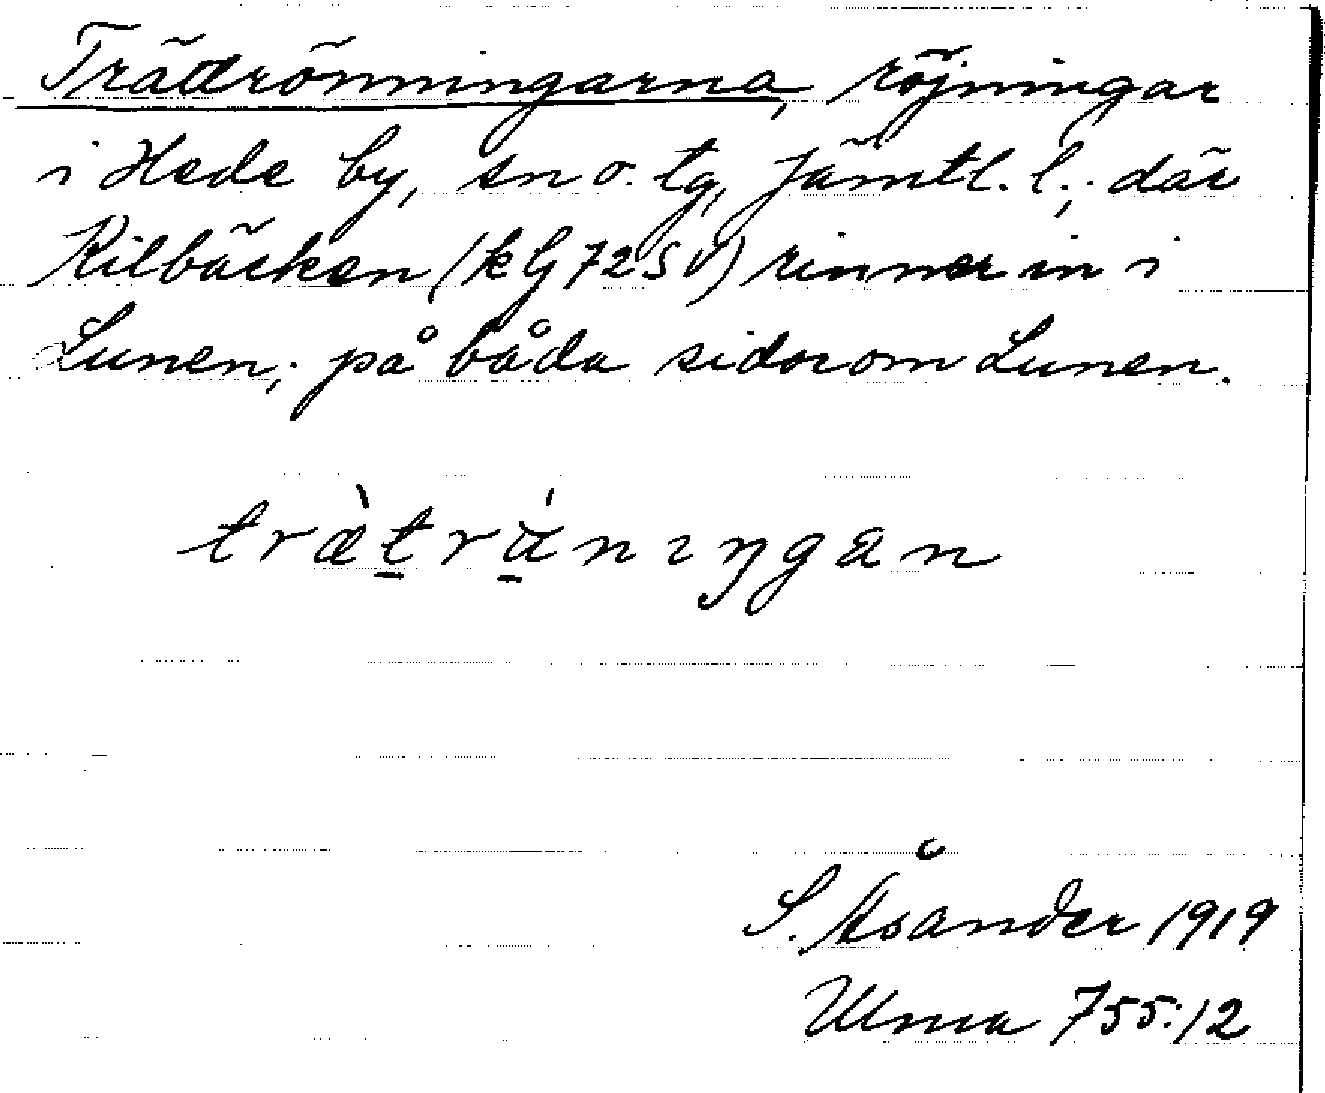 Trädrönningarna, röjningar
i Hede by, sn o. tg, Jämtl. l.; där
Kilbäcken (kG 72 SV) rinner in i
Lunen; på båda sidor om Lunen.
træ̀träńıŋgan
S. Åsander 1919
Ulma 755:12